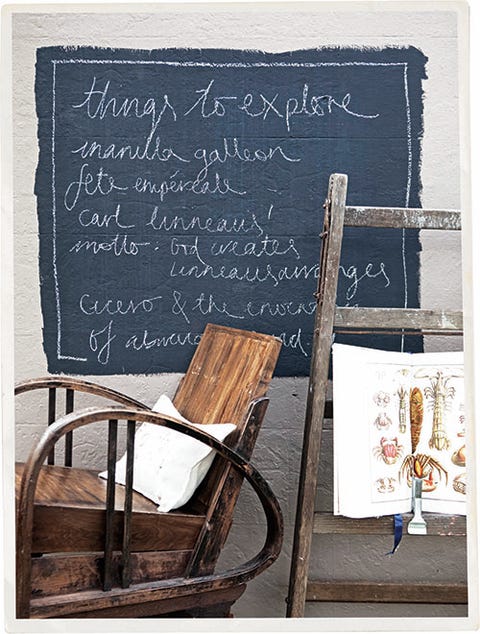 things to explore
manilla galleon
fete empéreale
carl linneaus'
motto: god creates
linneaus arranges
cicero & the
of